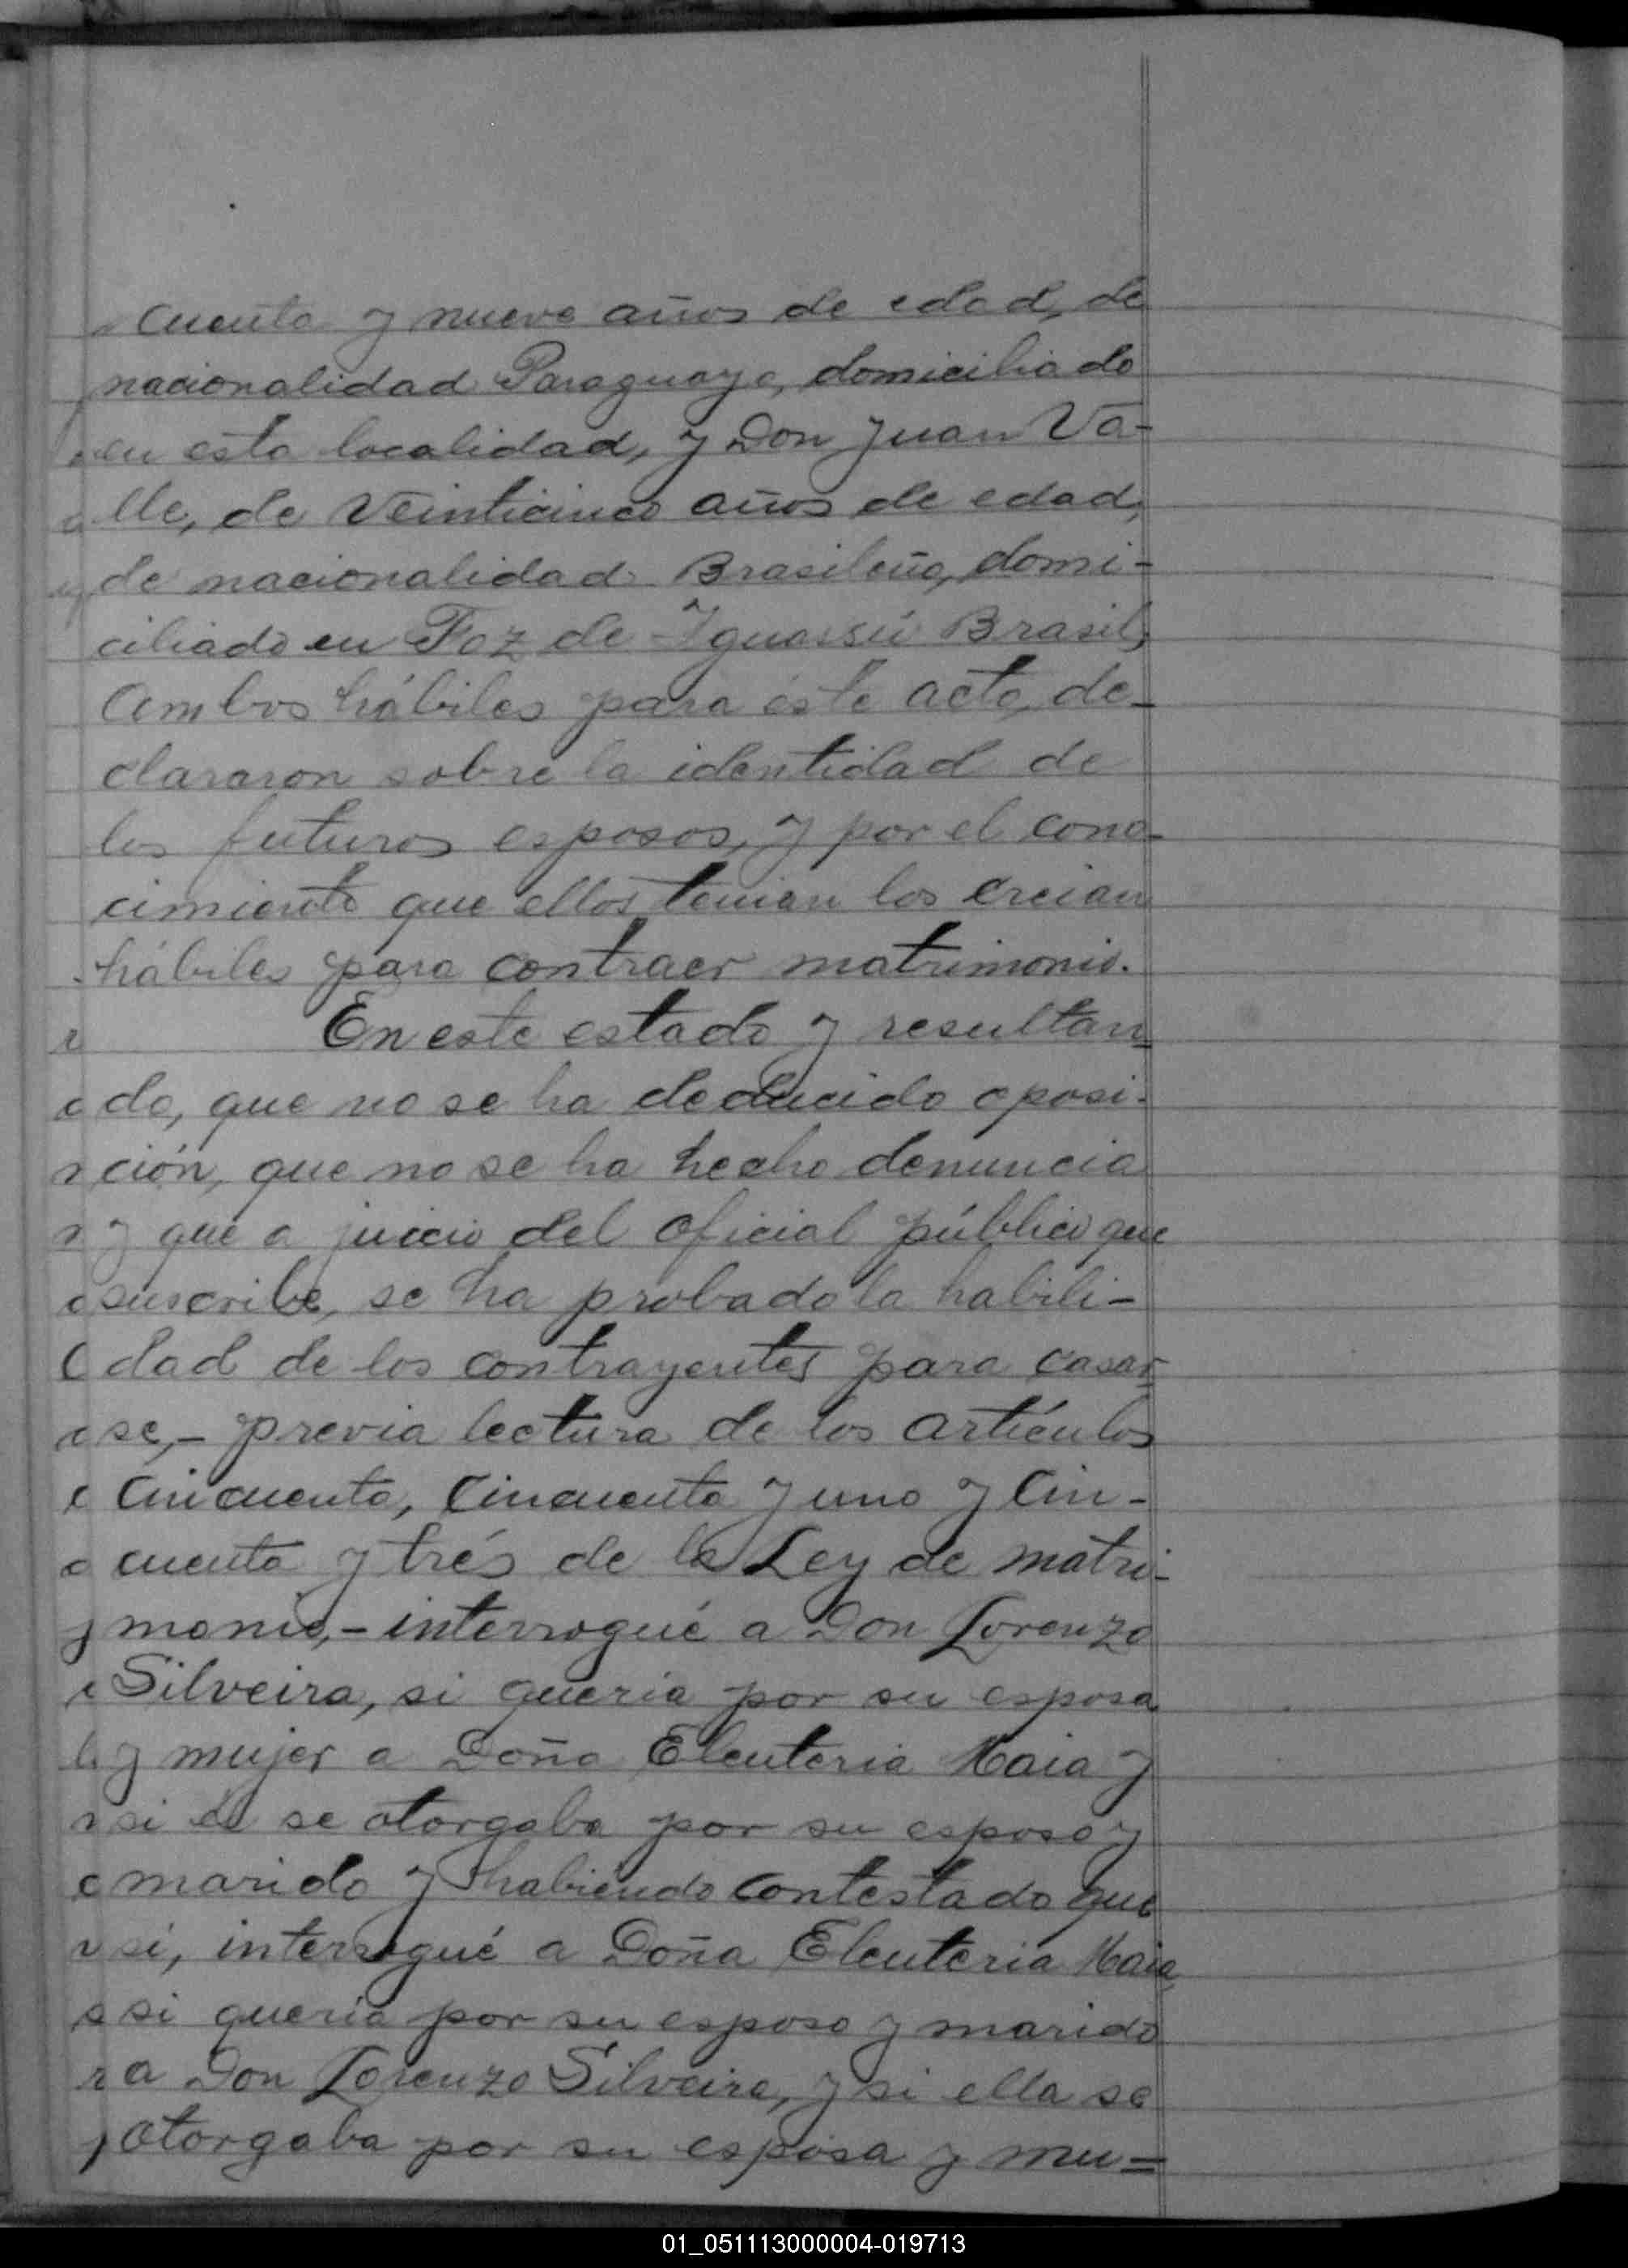 cuenta y nueve años de edad, de
nacionalidad Paraguaya, domiciliado
en esta localidad, y Don Juan Va-
lle, de Veinticinco años de edad,
de nacionalidad Brasileña, domi-
ciliado en Foz de Iguassú Brasil,
Ambos hábiles para éste acto, de-
clararon sobre la identidad de
los futuros esposos, y por el cono-
cimiento que ellos tenian los creian
hábiles para contraer matrimonio.
En este estado y resultan-
do, que no se ha deducido oposi-
ción, que no se ha hecho denuncia
y que a juicio del oficial público que
suscribe, se ha probado la habili-
dad de los contrayentes para casar-
se,- previa lectura de los artículos
Cincuenta, Cincuenta y uno y Cin-
cuenta y trés de la Ley de matri-
monio,- interrogué a Don Lorenzo
Silveira, si queria por su esposa
y mujer a Doña Eleuteria Maia y
si él se otorgaba por su esposo y
marido y habiendo contestado que
si, interrogué a Doña Eleuteria Maia,
si queria por su esposo y marido
a Don Lorenzo Silveira, y si ella se
otorgaba por su esposa y mu=
01_051113000004-019713